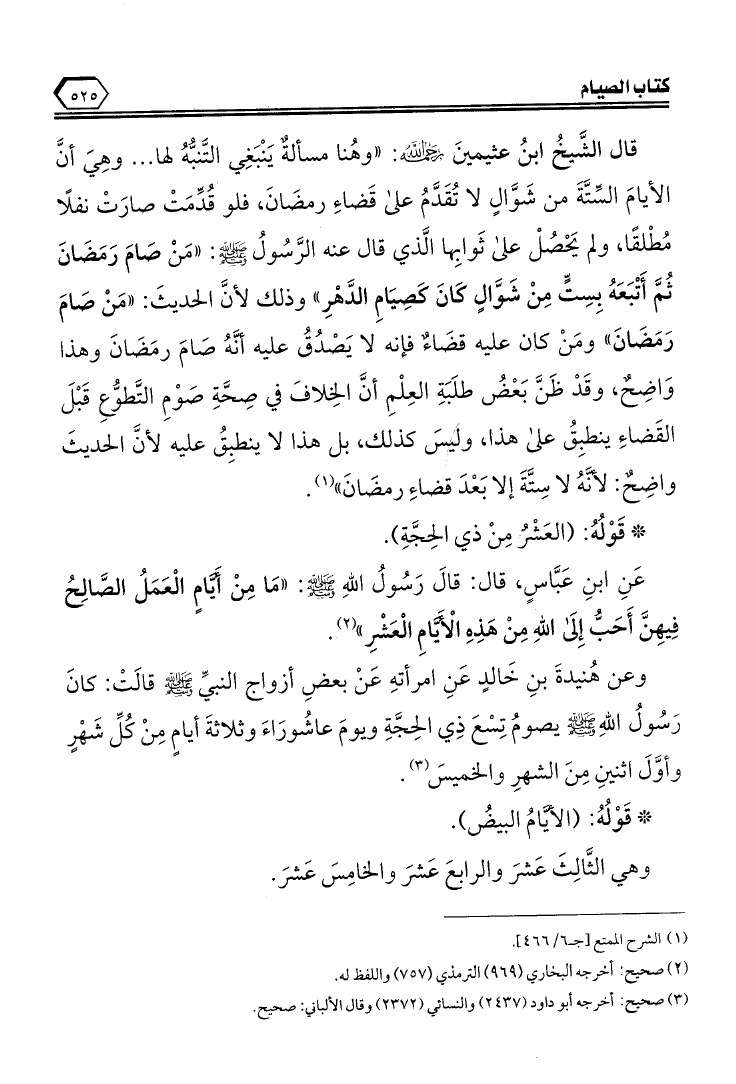 كتاب الصيام
٥٢٥
قال الشَّيخُ ابنُ عثيمينَ رَحِمَهُ اللَّهُ: «وهُنا مسألةٌ يَنْبَغِي التَّنبُّهُ لها... وهِيَ أنَّ
الأيامَ السِّتَّةَ من شَوَّالٍ لا تُقَدَّمُ علىٰ قَضاءِ رمضَانَ، فلو قُدِّمَتْ صارَتْ نفلًا
مُطْلقًا، ولم يَحْصُلْ علىٰ ثَوابِها الَّذي قال عنه الرَّسُولُ ﷺ: «مَنْ صَامَ رَمَضَانَ
ثُمَّ أَتْبَعَهُ بِستٍّ مِنْ شَوَّالٍ كَانَ كَصِيَامِ الدَّهْرِ» وذلك لأنَّ الحديثَ: «مَنْ صَامَ
رَمَضَانَ» ومَنْ كان عليه قضَاءٌ فإنه لا يَصْدُقُ عليه أنَّهُ صَامَ رمضَانَ وهذا
وَاضِحٌ، وقَدْ ظَنَّ بَعْضُ طلَبَةِ العِلْمِ أنَّ الخِلافَ في صِحَّةِ صَوْمِ التَّطوُّعِ قَبْلَ
القَضاءِ ينطبِقُ علىٰ هذا، وليسَ كذلك، بل هذا لا ينطبِقُ عليه لأنَّ الحديثَ
واضِحٌ: لأنَّهُ لا سِتَّةَ إلا بَعْدَ قضاءِ رمضَانَ»(١).
* قَوْلُهُ: (العَشْرُ مِنْ ذي الحِجَّةِ).
عَنِ ابنِ عَبَّاسٍ، قال: قالَ رَسُولُ اللهِ ﷺ: «مَا مِنْ أَيَّامٍ الْعَمَلُ الصَّالِحُ
فِيهِنَّ أَحَبُّ إِلَىٰ اللهِ مِنْ هَذِهِ الْأَيَّامِ الْعَشْرِ»(٢).
وعن هُنيدةَ بنِ خَالدٍ عَنِ امرأتهِ عَنْ بعضِ أزواجِ النبيِّ ﷺ قالَتْ: كانَ
رَسُولُ اللهِ ﷺ يصومُ تِسْعَ ذِي الحِجَّةِ ويومَ عاشُورَاءَ وثلاثةَ أيامٍ مِنْ كُلِّ شَهْرٍ
وأوَّلَ اثنينِ مِنَ الشهرِ والخميسَ(٣).
* قَوْلُهُ: (الأيَّامُ البيضُ).
وهي الثَّالِثَ عَشَرَ والرابعَ عَشَرَ والخامِسَ عَشَرَ.
(١) الشرح الممتع [جـ٦/ ٤٦٦].
(٢) صحيح: أخرجه البخاري (٩٦٩) الترمذي (٧٥٧) واللفظ له.
(٣) صحيح: أخرجه أبو داود (٢٤٣٧) والنسائي (٢٣٧٢) وقال الألباني: صحيح.